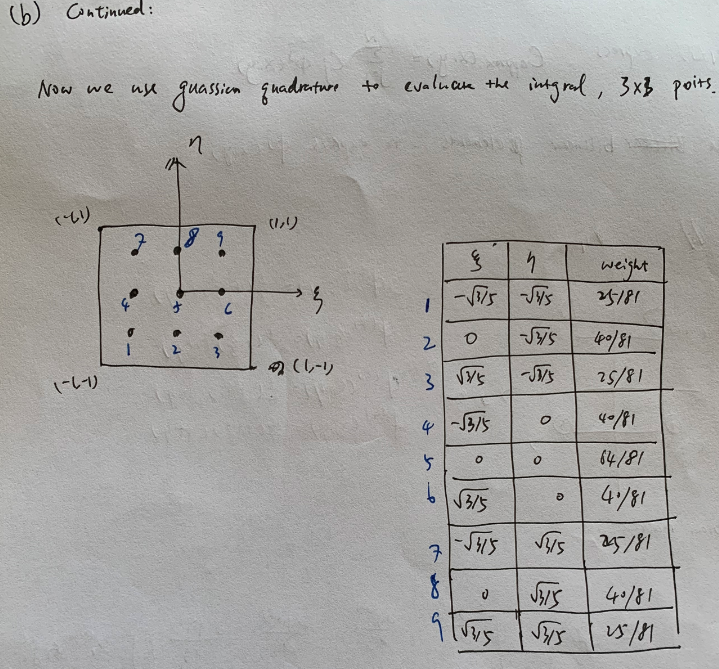 (b) Continued:
Now we use guassian quadrature to evaluate the intgral, 3x3 poits.
η
(-1,1)
(1,1)
7 8 9
4 5 6
ξ
1 2 3
(-1,-1)
(1,-1)
ξ η weight
1 -√3/5 -√3/5 25/81
2 0 -√3/5 40/81
3 √3/5 -√3/5 25/81
4 -√3/5 0 40/81
5 0 0 64/81
6 √3/5 0 40/81
7 -√3/5 √3/5 25/81
8 0 √3/5 40/81
9 √3/5 √3/5 25/81